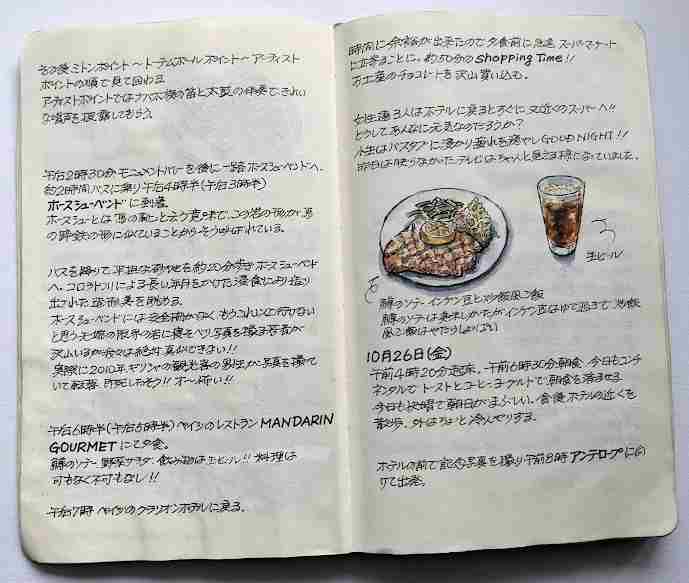 その後ミトンポイント〜トーテムポールポイント〜アーティスト
ポイントの順で見て回る
アーティストポイントではナバホ族の笛と太鼓の伴奏できれい
な唄声を披露してもらう。
午后2時30分 モニュメントバレーを後に一路ホースシューベンドへ。
約2時間バスに乗り午后4時半(午后3時半)
ホースシューベンドに到着。
ホースシューとは馬の靴と云う意味で、この岩の形が馬
の蹄鉄の形に似ていることからそう呼ばれている。
バスを降りて平坦な砂地を約20分歩きホースシューベンド
へ。コロラド川による長い年月をかけた浸食により造り
出された造形美を眺める。
ホースシューには安全柵がなく、もうこれ以上行けない
と思う先端の限界の岩に寝そべり写真を撮る若者が
沢山いるが我々は絶対真似できない!!
実際に2010年ギリシャの観光客の男性が写真を撮って
いて転落、即死したそう!! オー怖い!!
午后6時半(午后5時半) ペイジのレストラン MANDARIN
GOURMET にて夕食。
鱒のソテー 野菜サラダ、飲み物は生ビール!! 料理は
可もなく不可もなし!!
午后7時 ペイジのクラリオンホテルに戻る。
時間に余裕が出来たので夕食前に急遽 スーパーマーケット
に立寄ることに。約50分の Shopping Time!!
お土産のチョコレートを沢山買い込む。
女性達3人はホテルに戻るとすぐに又近くのスーパーへ!!
どうしてあんなに元気なのだろうか?
小生はバスタブに浸かり疲れを癒やし GOOD NIGHT!!
昨日は映らなかったテレビはちゃんと見える様になっていました。
生ビール
鱒のソテー インゲン豆と炒飯風ご飯
鱒のソテーは美味しかったがインゲン豆はゆで過ぎで 炒飯
風ご飯はやたらしょっぱい
10月26日(金)
午前4時20分起床。午前6時30分朝食 今日もコンチ
ネンタルで トーストとコーヒーヨーグルトで朝食を済ませる
今日も快晴で朝日がまぶしい。食後ホテルの近くを
散歩、外はちょっと冷んやりする。
ホテルの前で記念写真を撮り午前8時 アンテロープに向
けて出発。